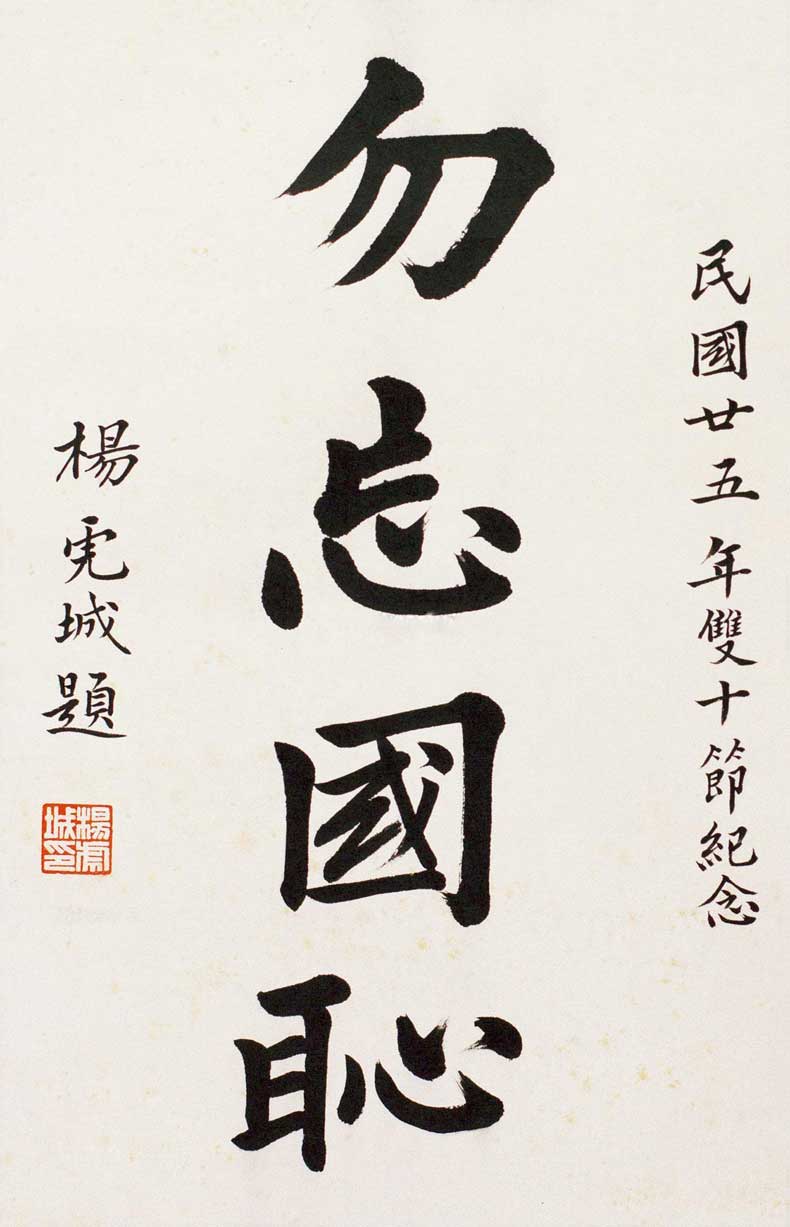 民國廿五年雙十節紀念
勿忘國恥
楊虎城題
楊虎城印